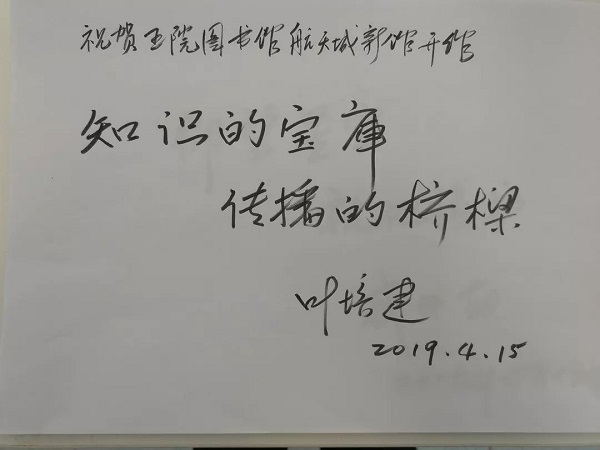 祝贺五院图书馆航天城新馆开馆
知识的宝庫
传播的桥樑
叶培建
2019.4.15